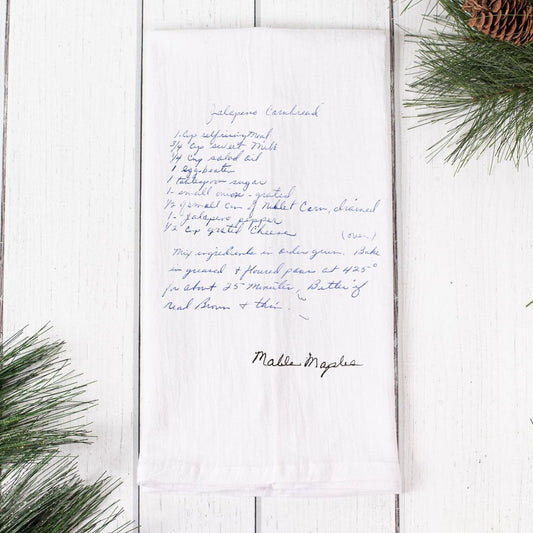 Jalapeno Cornbread
1 cup selfrising Meal
3/4 cup sweet Milk
1/4 cup salad oil
1 egg-beaten
1 tablespoon sugar
1- small onion - grated
1/2 of small can of Niblet Corn, drained
1- Jalapeno pepper
1/2 cup grated Cheese (over)
Mix ingredients in order given. Bake
in greased & floured pans at 425°
for about 25 Minutes, Better if
real Brown & thin.
Mable Maples